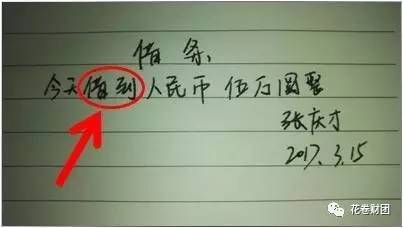 借条
今天借到人民币伍万圆整
张庆才
2017.3.15
花卷财团